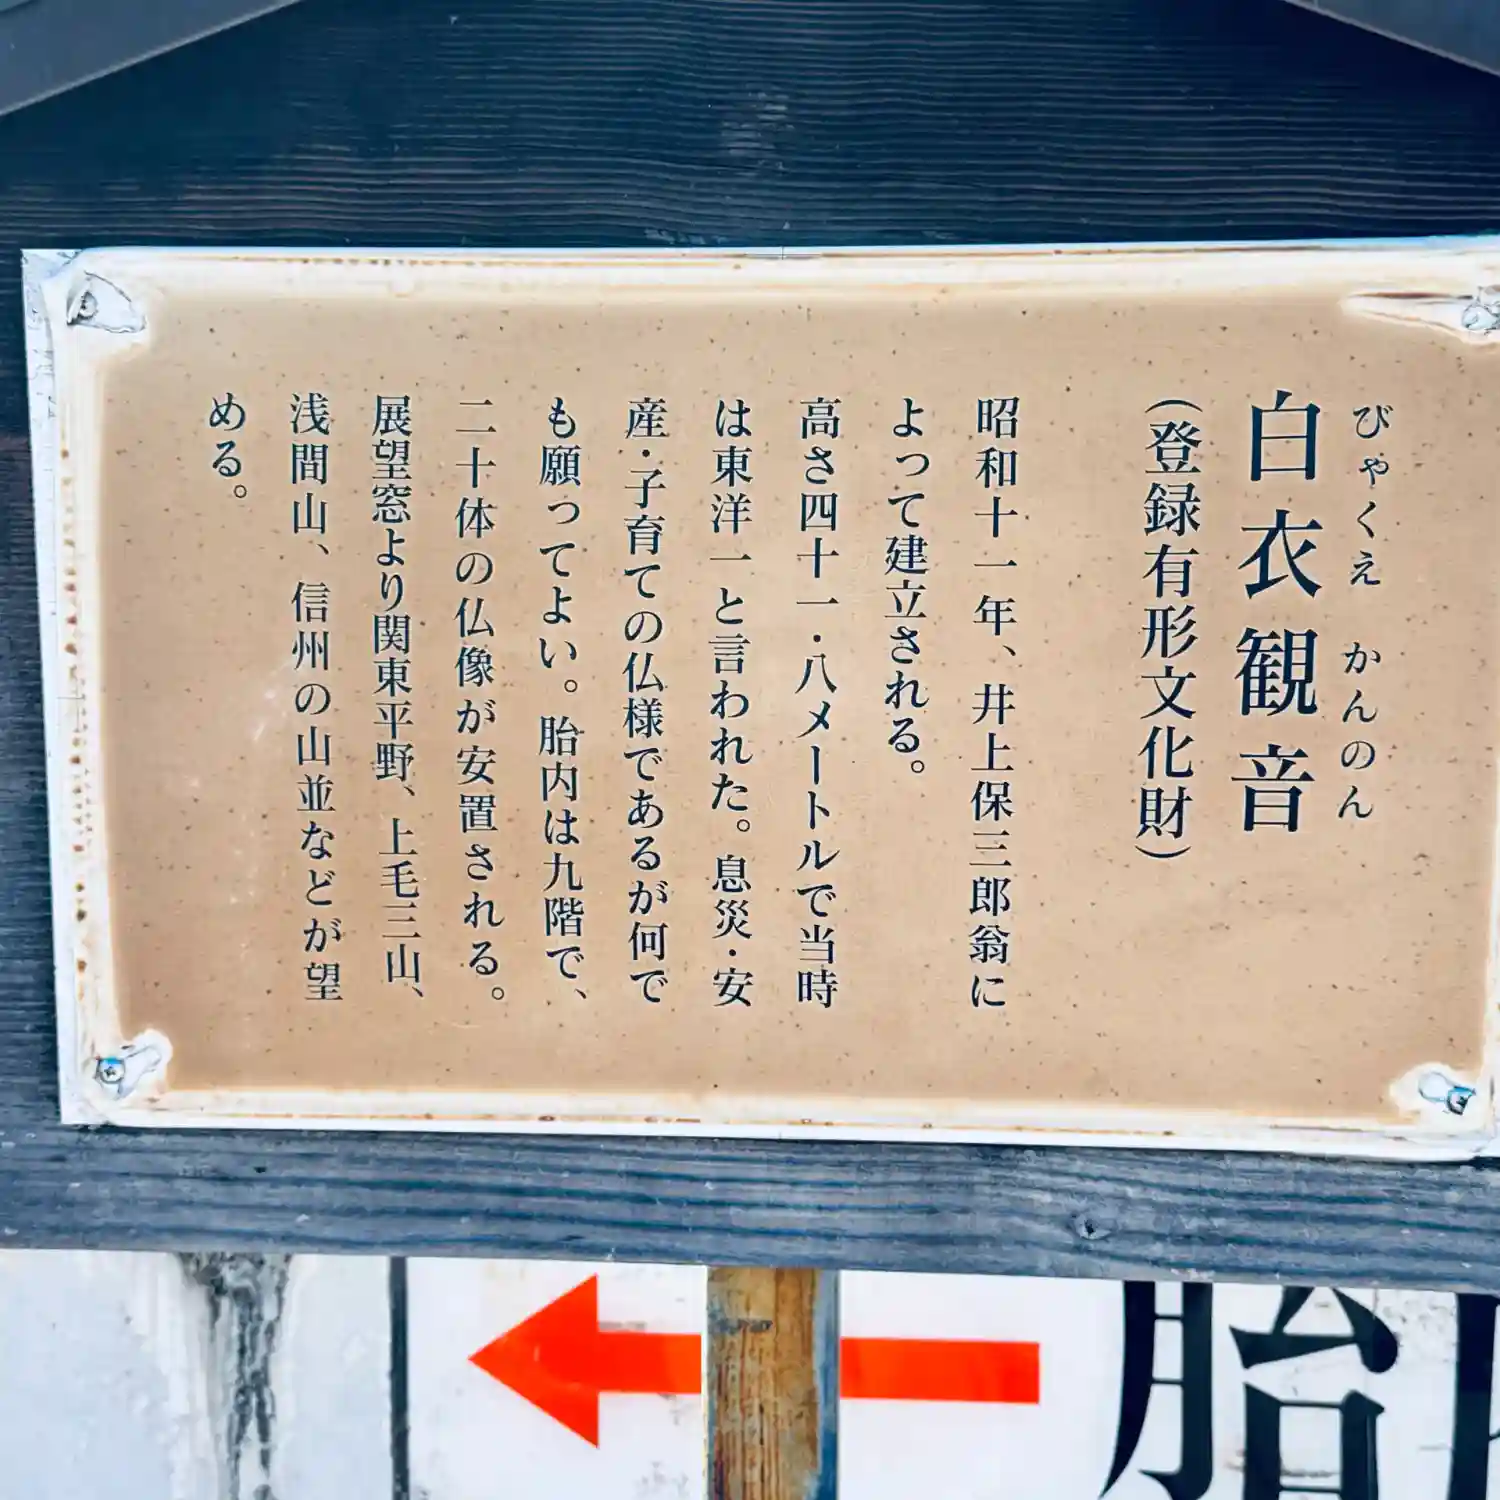 びゃくえ かんのん
白衣観音
(登録有形文化財)
昭和十一年、井上保三郎翁に
よって建立される。
高さ四十一・八メートルで当時
は東洋一と言われた。息災・安
産・子育ての仏様であるが何で
も願ってよい。胎内は九階で、
二十体の仏像が安置される。
展望窓より関東平野、上毛三山、
浅間山、信州の山並などが望
める。
胎